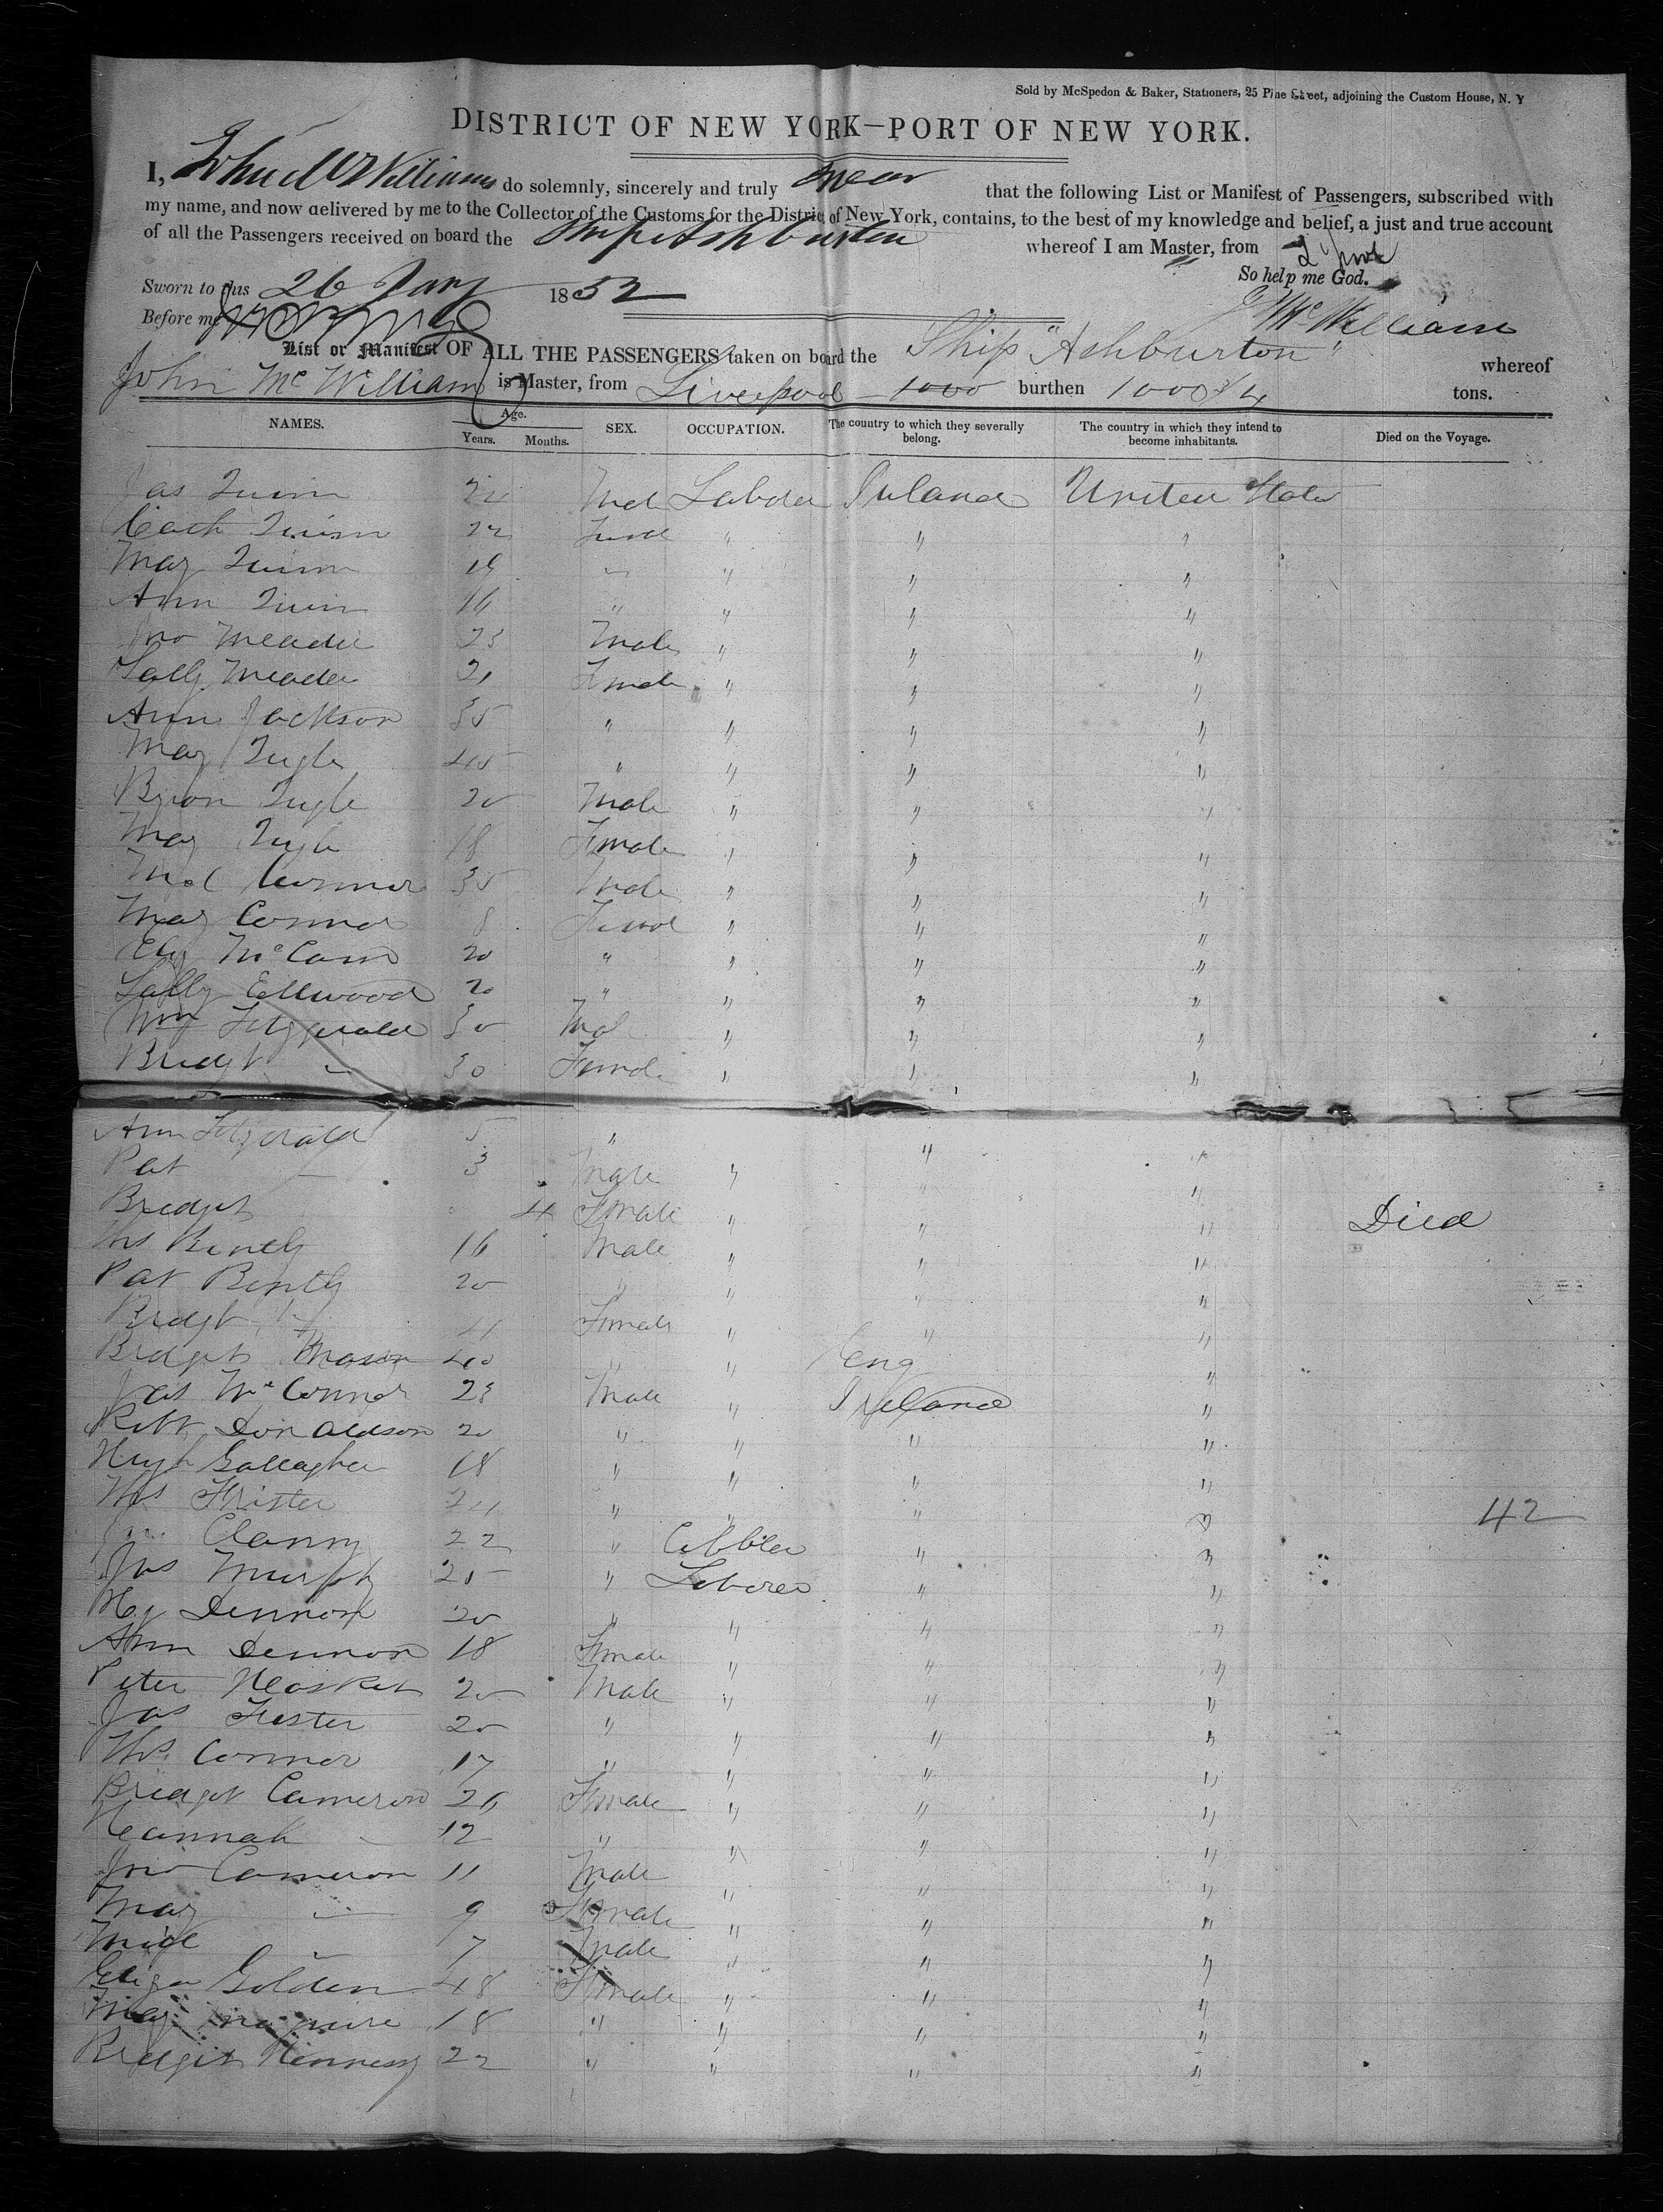 Sold by McSpedon & Baker, Stationers, 25 Pine Street, adjoining the Custom House, N. Y
DISTRICT OF NEW YORK—PORT OF NEW YORK.
I, John McWilliams do solemnly, sincerely and truly swear that the following List or Manifest of Passengers, subscribed with
my name, and now delivered by me to the Collector of the Customs for the District of New York, contains, to the best of my knowledge and belief, a just and true account
of all the Passengers received on board the Ship Ashburton whereof I am Master, from
So help me God.
Sworn to this 26 Jany 1852
J McWilliams
Before me
List or Manifest OF ALL THE PASSENGERS taken on board the Ship "Ashburton" whereof
John McWilliams is Master, from Liverpool 1000 burthen 1000 3/4 tons.
NAMES. Age. Years. Months. SEX. OCCUPATION. The country to which they severally belong. The country in which they intend to become inhabitants. Died on the Voyage.
Jas Quinn Male Labour Ireland United States
Cath Quinn 22 " " "
May Quinn 19 " " " "
Ann Quinn 16 " " " "
Jno Meadie 23 Male " " "
Sally Meade 21 Female " " "
Ann Jackson 35 " " " "
May 45 " " " "
20 Male " " "
May 18 Female " " "
Connor 35 Male " " "
May Connor 8 " " "
McCann 20 " " " "
Sally Ellwood 20 " " " "
Wm Fitzgerald 30 Male " " "
Bridgt " 30 Female " " "
Ann Fitzgerald 5 " " "
Pat 3 Male " " "
Bridget 4 Female " " " Died
Ths 16 Male " " "
Pat 20 " " " "
Bridgt Female " " "
Bridget Mason 40 " " Eng "
Jas McConnor 23 Male " Ireland "
Robt Donaldson 20 " " " "
Hugh Gallagher 18 " " " "
Ths " " " " 42
Clanny 22 " Cobbler " "
Jas Murphy 25 " Laborer " "
Dennon 20 " " " "
Ann Dennon 18 Female " " "
Peter 20 Male " " "
Jas 20 " " " "
Ths Connor 17 " " " "
Bridget Cameron 26 Female " " "
Hannah " 12 " " " "
Jno Cameron 11 Male " " "
May " 9 Female " " "
" 7 Male " " "
Eliza Golden 48 Female " " "
May Maguire 18 " " " "
Bridgit Hennessy 22 " " " "